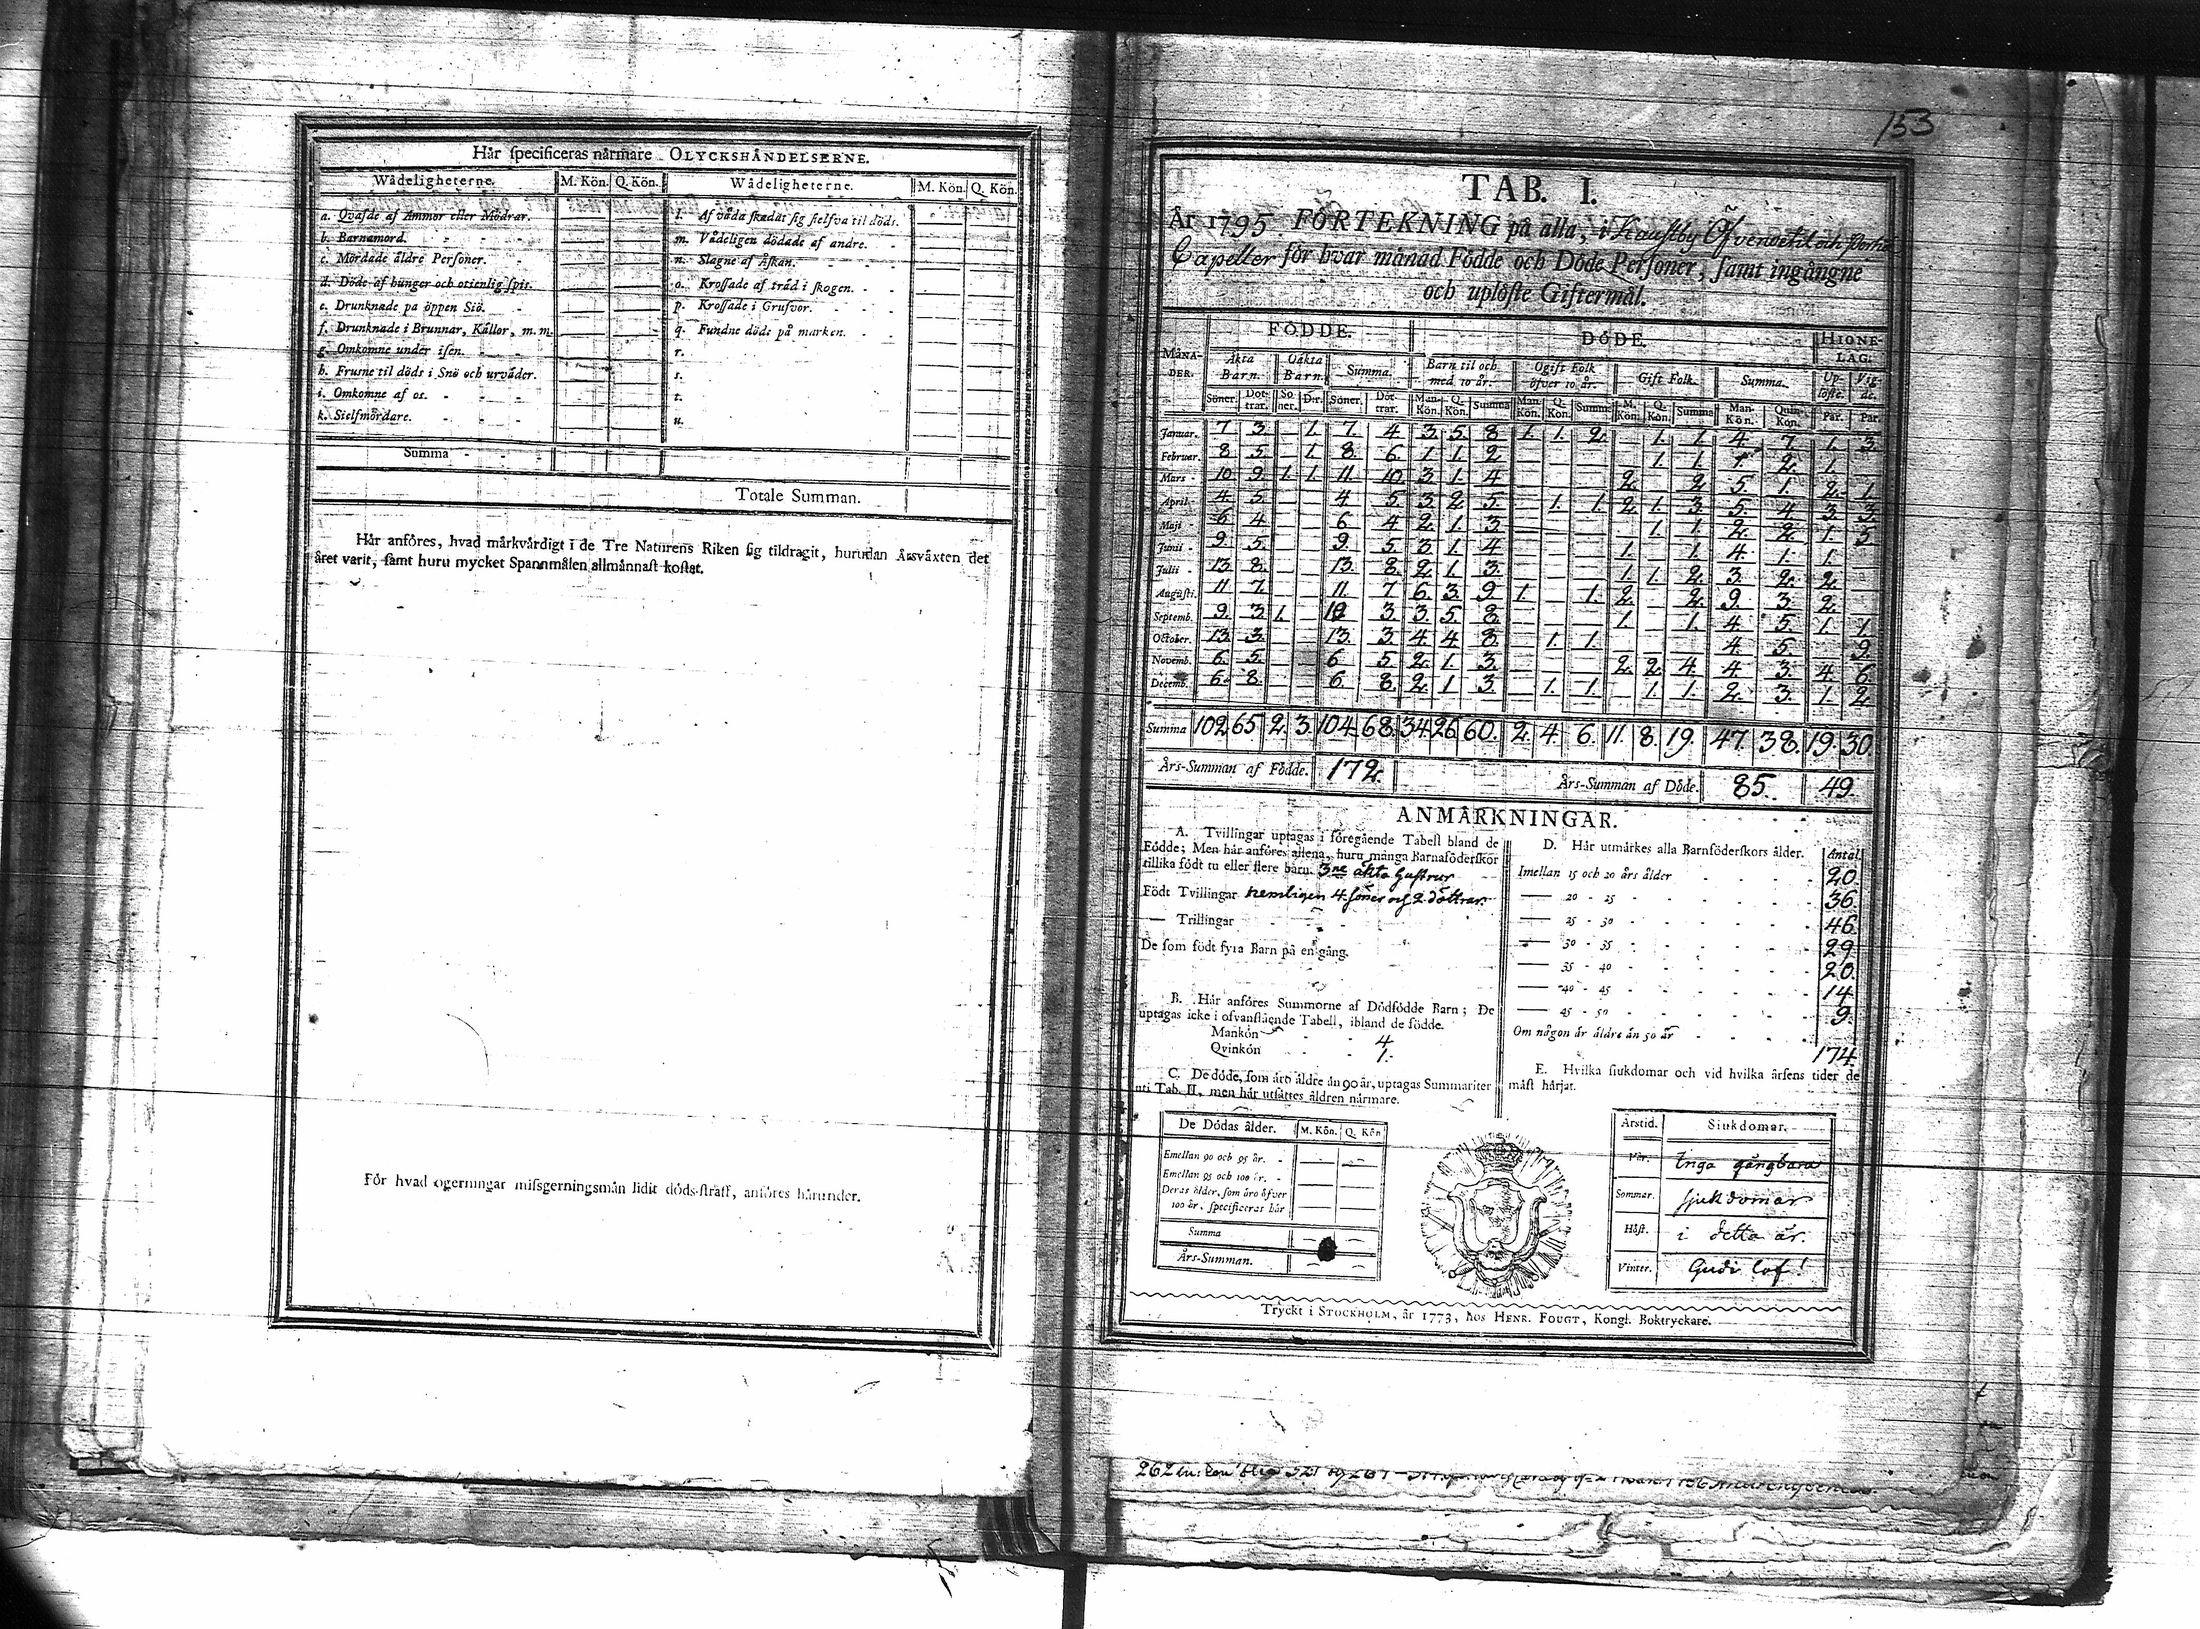 Hår specificeras nårmare OLYCKSHÅNDELSERNE.
Wådeligheterne. M. Kön. Q. Kön. Wådeligheterne. M. Kön. Q. Kön.
a. Qvafde af Ammor eller Mödrar. l. Af våda skadat sig sielfva til döds.
b. Barnamord. m. Vådeligen dödade af andre.
c. Mördade åldre Personer. n. Slagne af Åskan.
d. Döde af hunger och otienlig spis. o. Krossade af tråd i skogen.
e. Drunknade på öppen Siö. p. Krossade i Grufvor.
f. Drunknade i Brunnar, Kållor, m. m. q. Fundne döde på marken.
g. Omkomne under isen. r.
h. Frusne til döds i Snö och urvåder. s.
i. Omkomne af os. t.
k. Sielfmördare. u.
Summa
Totale Summan.
Hår anföres, hvad mårkvårdigt i de Tre Naturens Riken sig tildragit, hurudan Årsvåxten det
året varit, samt huru mycket Spannmålen allmånnast kostat.
För hvad ogerningar missgerningsmån lidit döds-straff, anföres hårunder.
153
TAB. I.
År 1795 FÖRTEKNING på alla, i Kaustby Öfvervetil och
Capeller för hvar månad Födde och Döde Personer, samt ingångne
och uplöste Giftermål.
MÅNA-DER. FÖDDE. DÖDE. HIONE-LAG.
Åkta Barn. Oåkta Barn. Summa. Barn til och med 10 år. Ogift Folk öfver 10 år. Gift Folk. Summa. Up-löste. Vig-de.
Söner. Döt-trar. Sö-ner. Dtr. Söner. Döt-trar. Man-Kön. Q. Kön. Summa Man-Kön. Q. Kön. Summa M. Kön. Q. Kön. Summa Man-Kön. Quin-Kön. Par. Par.
Januar. 7 3. 1. 7. 4 3. 5. 8 1. 1. 2. 1. 1. 4. 7 1. 3.
Februar. 8 5. 1. 8. 6. 1 1. 2 1. 1. 1. 2. 1.
Mars 10 9. 1. 1. 11. 10 3 1. 4 2. 2. 5. 1. 2. 1.
April 4. 5. 4 5 3 2. 5. 1. 1. 2. 1. 3. 5. 4 3. 3
Maji 6 4 6 4 2. 1. 3 1. 1. 2. 2. 1. 5
Junii 9. 5. 9. 5. 3 1. 4 1. 1. 4. 1. 1.
Julii 13 8. 13. 8 2. 1. 3. 1. 1. 2. 3. 2. 2.
Augusti. 11 7. 11. 7 6. 3. 9 1. 1. 2. 2. 9. 3. 2.
Septemb. 9. 3. 1. 10 3. 3. 5. 8. 1. 1. 4. 5. 1. 1.
October. 13. 3. 13. 3 4 4 8 1. 1. 4. 5. 9.
Novemb. 6. 5. 6 5 2. 1. 3. 2. 2. 4 4 3. 4. 6.
Decemb. 6. 8. 6. 8. 2. 1 3. 1. 1. 1. 1. 2. 3. 1. 2
Summa 102 65 2. 3. 104. 68 34 26 60. 2. 4. 6. 11. 8. 19. 47. 38. 19. 30.
Års-Summan af Födde. 172. Års-Summan af Döde. 85. 49.
ANMÅRKNINGAR.
A. Tvillingar uptagas i föregående Tabell bland de
Födde; Men hår anföres allena, huru många Barnaföderskor
tillika födt tu eller flere barn. 3ne åkta Hustrur
Födt Tvillingar nemligen 4. söner och 2 döttrar.
Trillingar
De som födt fyra Barn på en gång.
B. Hår anföres Summorne af Dödfödde Barn; De
uptagas icke i ofvanstående Tabell, ibland de födde.
Mankön 4
Qvinkön 1.
C. De döde, som åro åldre ån 90 år, uptagas Summariter
uti Tab. II, men hår utsåttes åldren nårmare.
De Dödas ålder. M. Kön. Q. Kön
Emellan 90 och 95 år.
Emellan 95 och 100 år.
Deras ålder, som åro öfver
100 år, specificeras hår
Summa
Års-Summan.
D. Hår utmårkes alla Barnföderskors ålder. Antal.
Imellan 15 och 20 års ålder 20
20 - 25 36
25 - 30 46
30 - 35 29
35 - 40 20.
40 - 45 14
45 - 50 9.
Om någon år åldre ån 50 år
174
E. Hvilka siukdomar och vid hvilka årsens tider de
måst hårjat.
Årstid. Siukdomar.
Vår. Inga gångbara
Sommar. sjukdomar
Höst. i detta år.
Vinter. Gudi lof!
Tryckt i STOCKHOLM, år 1773, hos HENR. FOUGT, Kongl. Boktryckare.